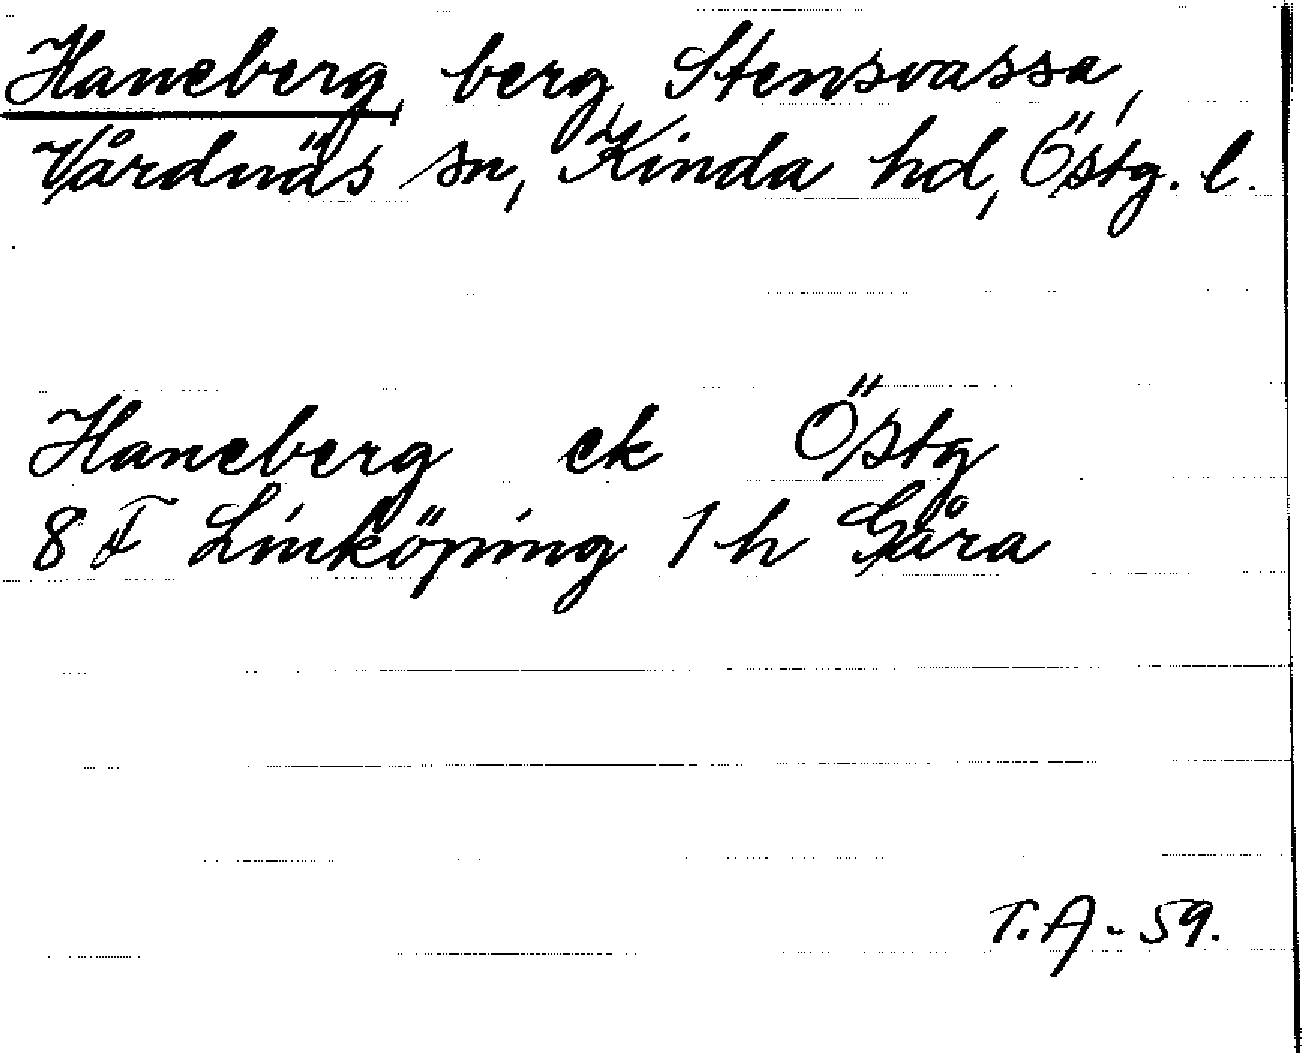 Haneberg, berg, Stensvassa,
Vårdnäs sn, Kinda hd, Östg. l.
Haneberg ek Östg
8 F Linköping 1 h Gåra
T.A - 59.